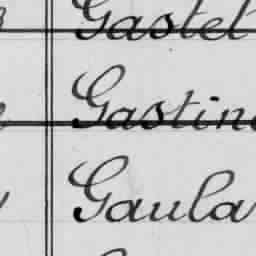 Gastel
Gastin
Gaula